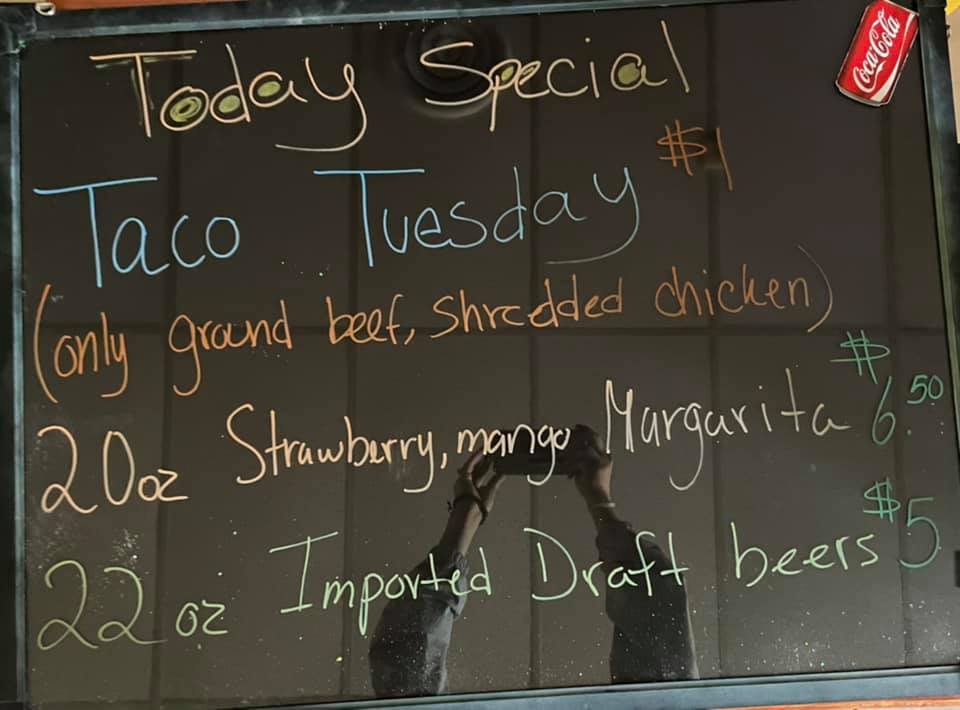 Today Special
Coca-Cola
Taco Tuesday $1
(only ground beef, shredded chicken)
20oz Strawberry, mango Margarita $6.50
22 oz Imported Draft beers $5